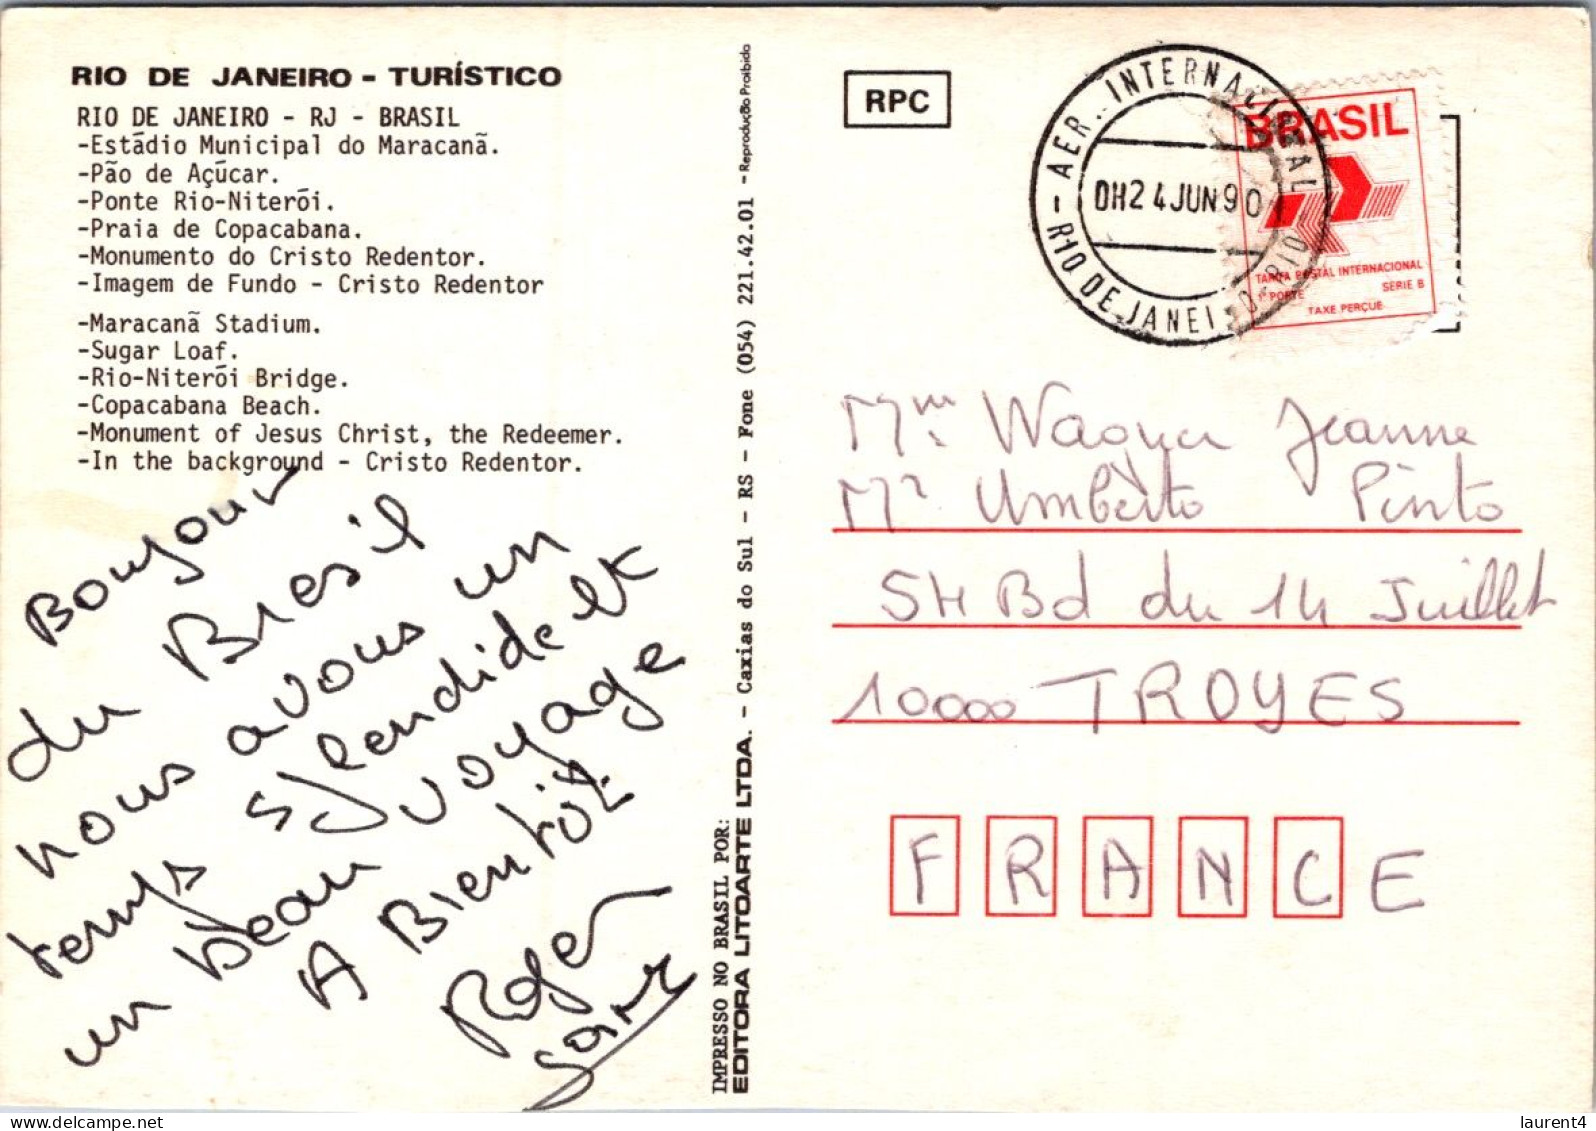 RIO DE JANEIRO - TURÍSTICO
RIO DE JANEIRO - RJ - BRASIL
-Estádio Municipal do Maracanã.
-Pão de Açúcar.
-Ponte Rio-Niterói.
-Praia de Copacabana.
-Monumento do Cristo Redentor.
-Imagem de Fundo - Cristo Redentor
-Maracanã Stadium.
-Sugar Loaf.
-Rio-Niterói Bridge.
-Copacabana Beach.
-Monument of Jesus Christ, the Redeemer.
-In the background - Cristo Redentor.
Bonjour
du Bresil
nous avons un
temps splendide et
un beau voyage
A Bientôt
Roger
IMPRESSO NO BRASIL POR:
EDITORA LITOARTE LTDA. - Caxias do Sul - RS - Fone (054) 221.42.01 - Reprodução Proibido
RPC
AER. INTERNACIONAL
RIO DE JANEI
0H24JUN90
BRASIL
TARIFA POSTAL INTERNACIONAL
1º PORTE SERIE B
TAXE PERÇUE
Mme Wagner Jeanne
Mr Umberto Pinto
54 Bd du 14 Juillet
10000 TROYES
FRANCE
laurent4